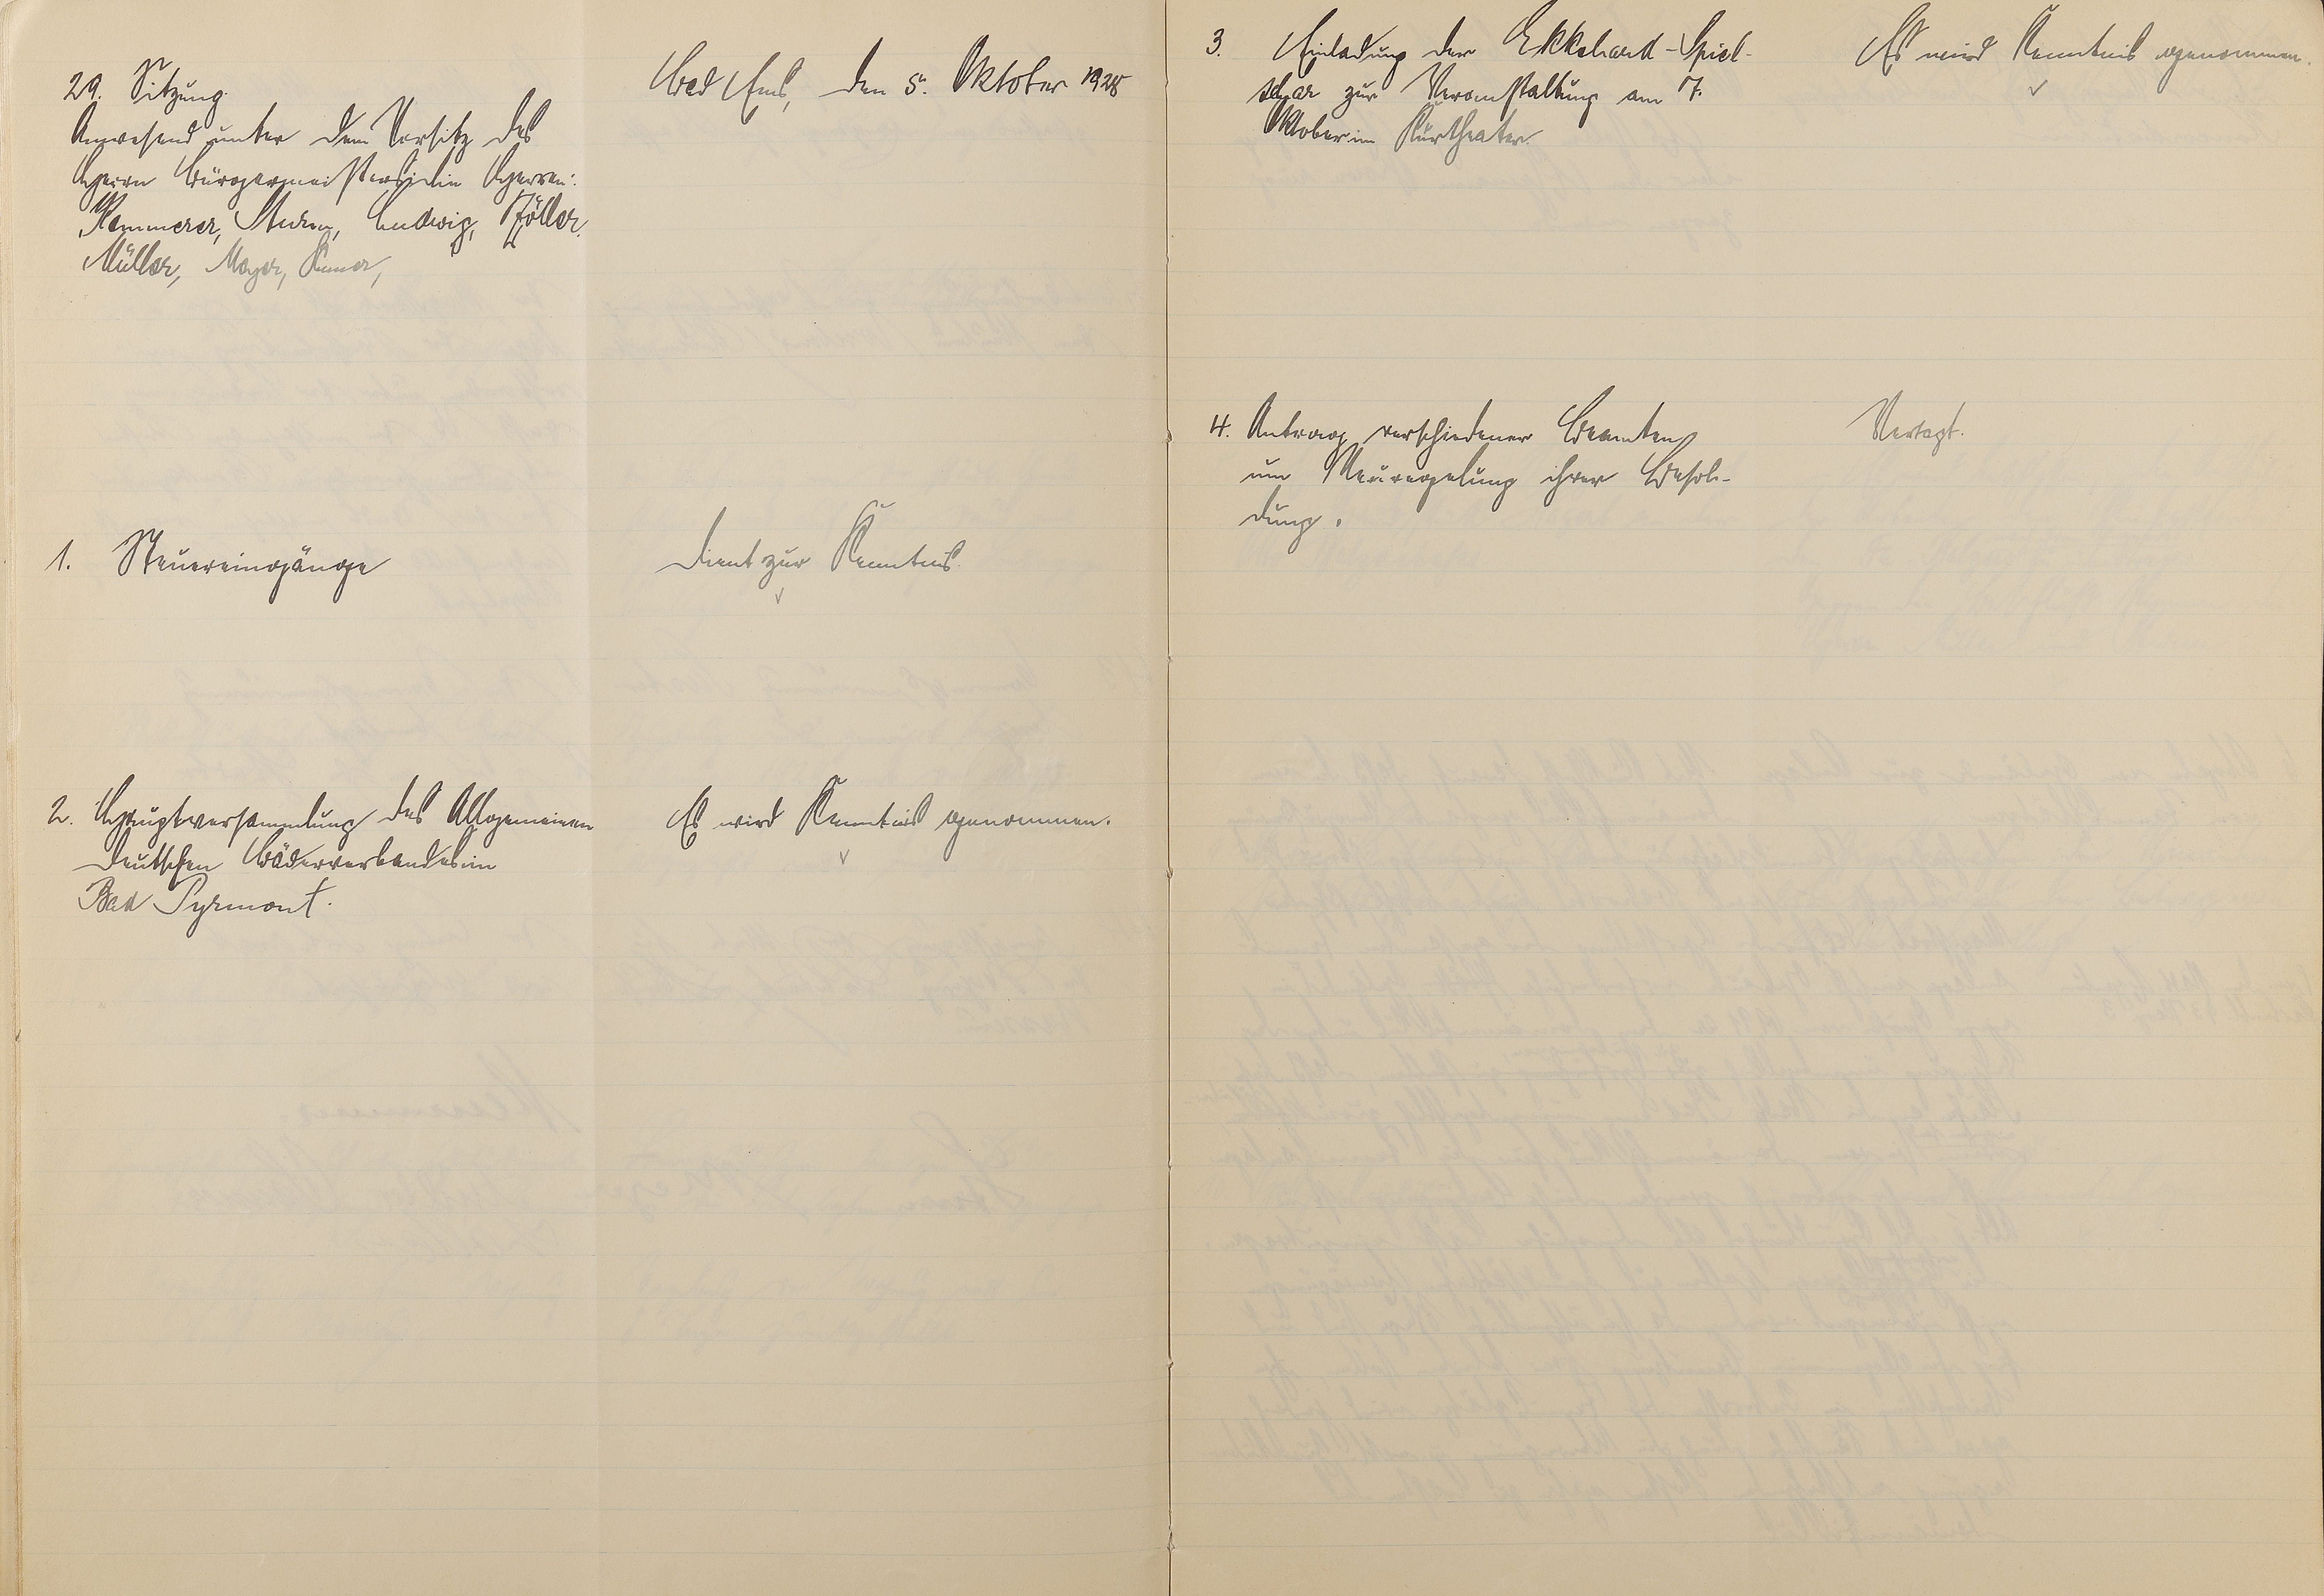 29. Sitzung.
Bad Ems, den 5. Oktober 1928
Anwesend unter dem Vorsitz des
Herrn Bürgermeisters die Herren:
Kemmerer, Sturm, Ludwig, Zöller,
Müller, Meyer,
1. Steuereingänge
Dient zur Kenntnis.
2. Hauptversammlung des Allgemeinen
Deutschen Bäderverbandes in
Bad Pyrmont.
Es wird Kenntnis genommen.
3. Einladung der Ekkehard-Spiel-
schar zur Veranstaltung am 7.
Oktober im Kurtheater.
Es wird Kenntnis genommen.
4. Antrag verschiedener Beamten
um Neuregelung ihrer Besol-
dung.
Vertagt.